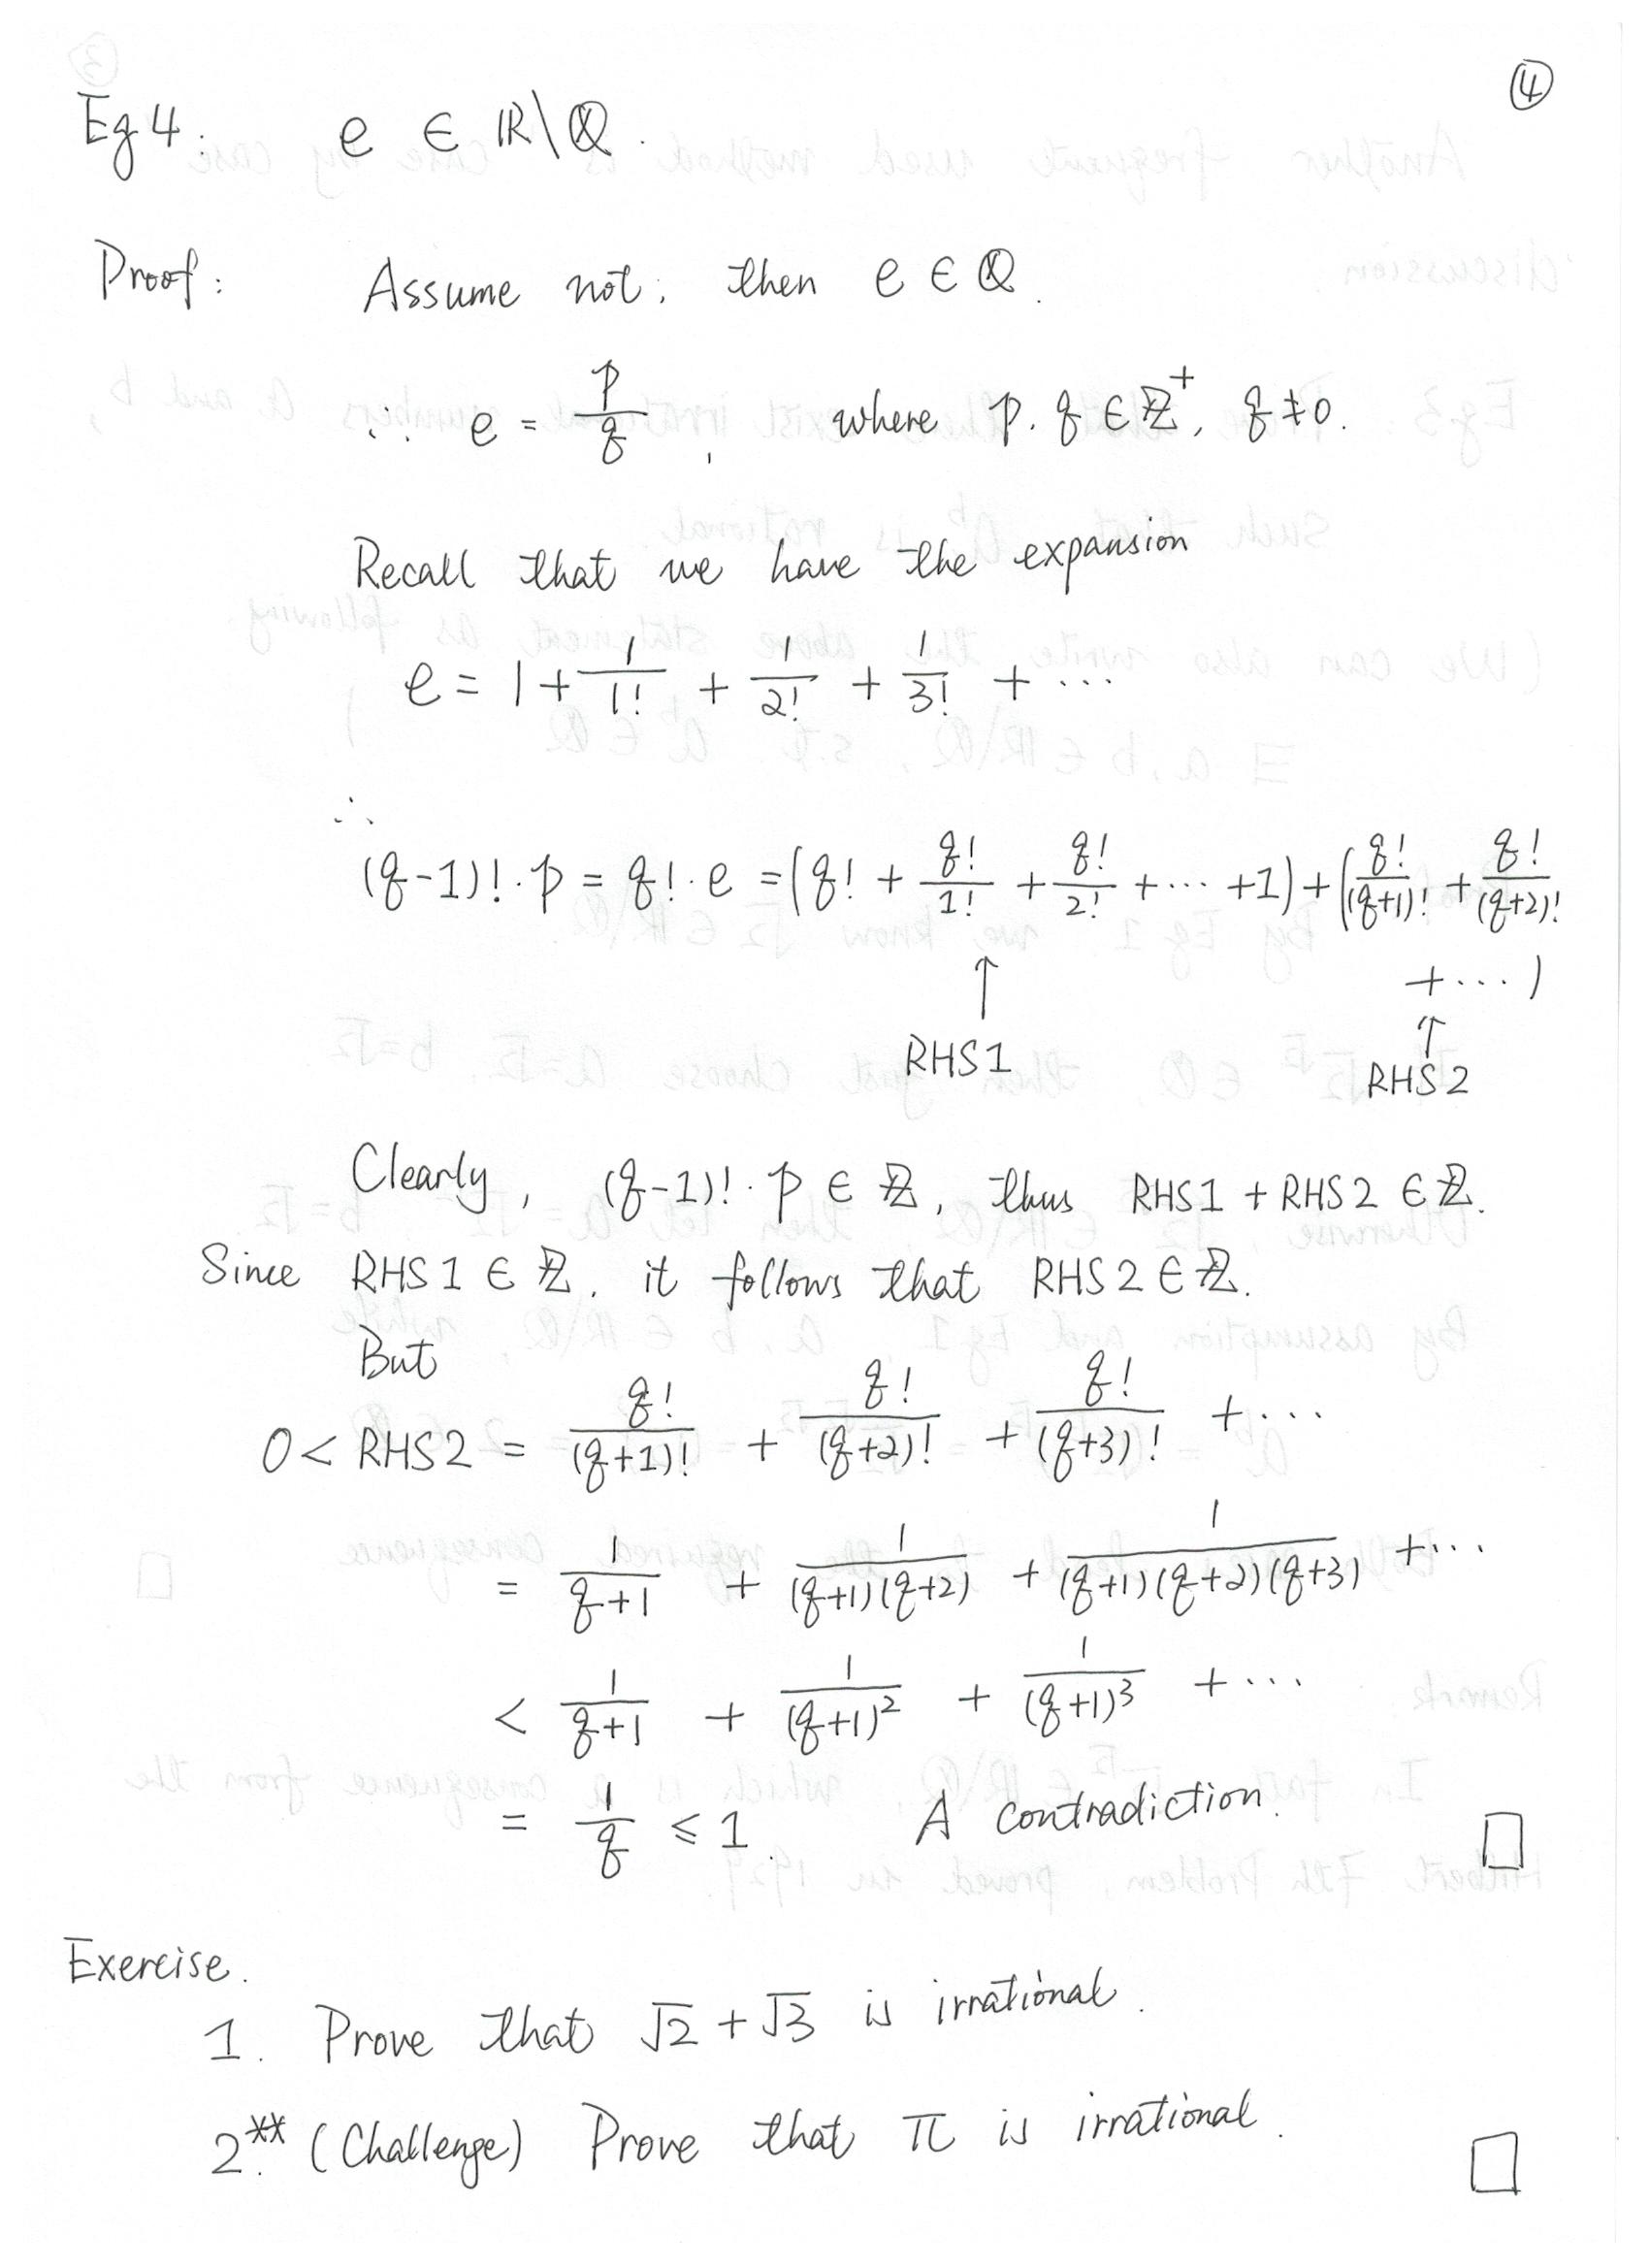 ④
Eg 4. e ∈ ℝ\ℚ.
Proof: Assume not, then e ∈ ℚ.
∴ e = p/q, where p, q ∈ ℤ⁺, q ≠ 0.
Recall that we have the expansion
e = 1 + 1/1! + 1/2! + 1/3! + ...
∴
(q-1)!·p = q!·e = (q! + q!/1! + q!/2! + ... + 1) + (q!/(q+1)! + q!/(q+2)!
+ ...)
↑ RHS1 ↑ RHS2
Clearly, (q-1)!·p ∈ ℤ, thus RHS1 + RHS2 ∈ ℤ.
Since RHS1 ∈ ℤ, it follows that RHS2 ∈ ℤ.
But
0 < RHS2 = q!/(q+1)! + q!/(q+2)! + q!/(q+3)! + ...
= 1/(q+1) + 1/((q+1)(q+2)) + 1/((q+1)(q+2)(q+3)) + ...
< 1/(q+1) + 1/(q+1)² + 1/(q+1)³ + ...
= 1/q ≤ 1. A contradiction. □
Exercise.
1. Prove that √2 + √3 is irrational.
2.** (Challenge) Prove that π is irrational. □